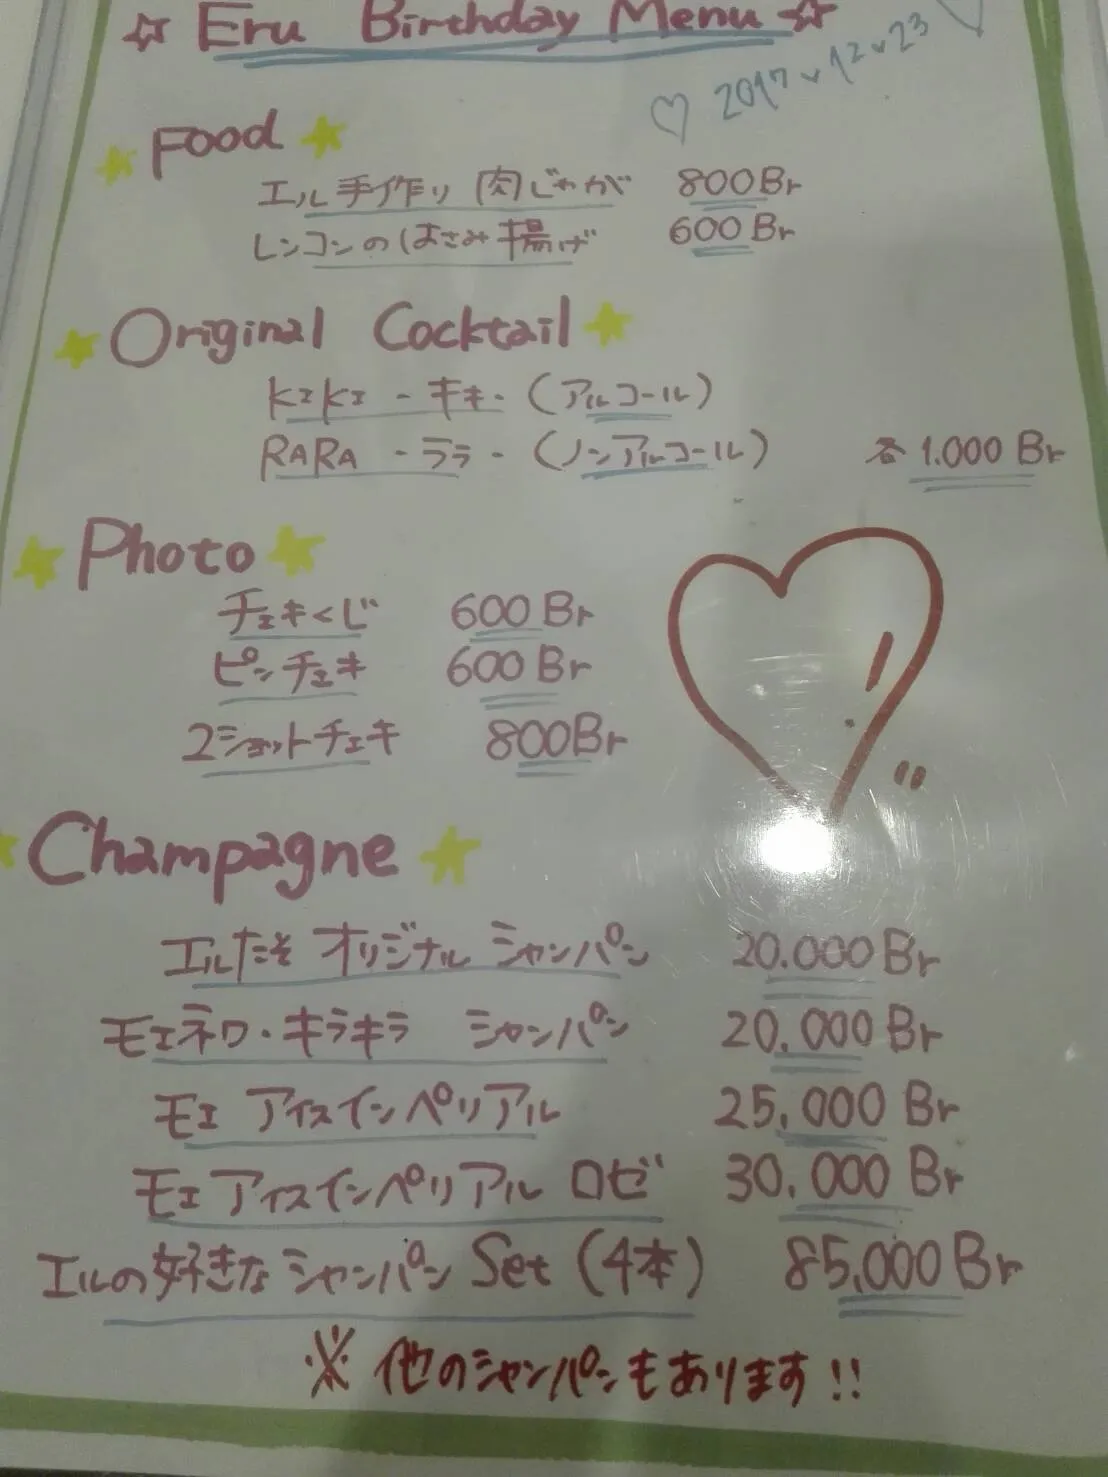 ☆ Eru Birthday Menu ☆
♡ 2017.12.23
Food
エル手作り 肉じゃが 800Br
レンコンのはさみ揚げ 600Br
Original Cocktail
KIKI - キキ - (アルコール)
RARA - ララ - (ノンアルコール) 各 1.000 Br
Photo
チェキくじ 600Br
ピンチェキ 600Br
2ショットチェキ 800Br
Champagne
エルたそ オリジナル シャンパン 20.000Br
モエネク・キラキラ シャンパン 20,000Br
モエ アイスインペリアル 25,000 Br
モエ アイスインペリアル ロゼ 30,000Br
エルの好きな シャンパン Set (4本) 85,000Br
※ 他のシャンパンもあります!!